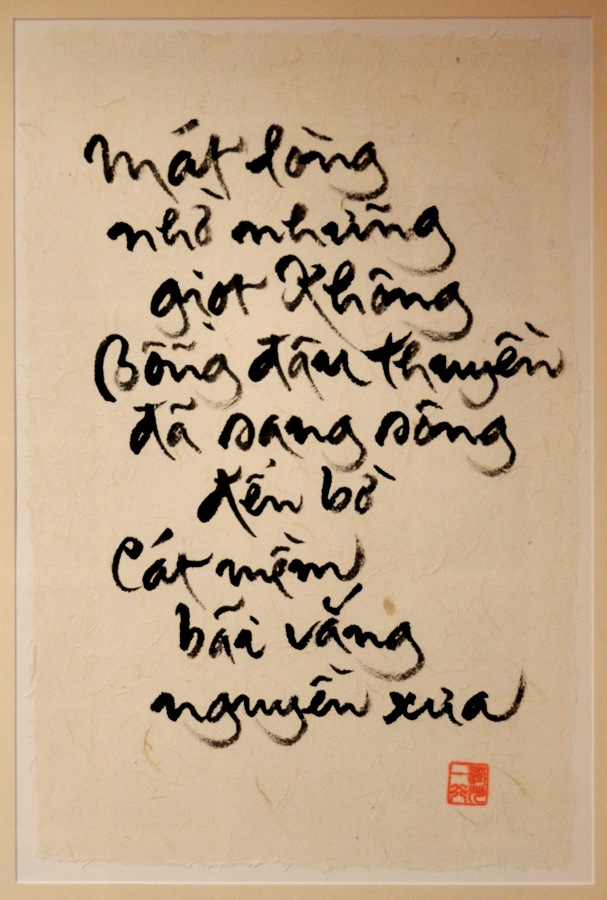 Mát lòng
nhờ những
giọt Không
Bỗng đâu thuyền
đã sang sông
đến bờ
Cát mềm
bãi vắng
nguyền xưa